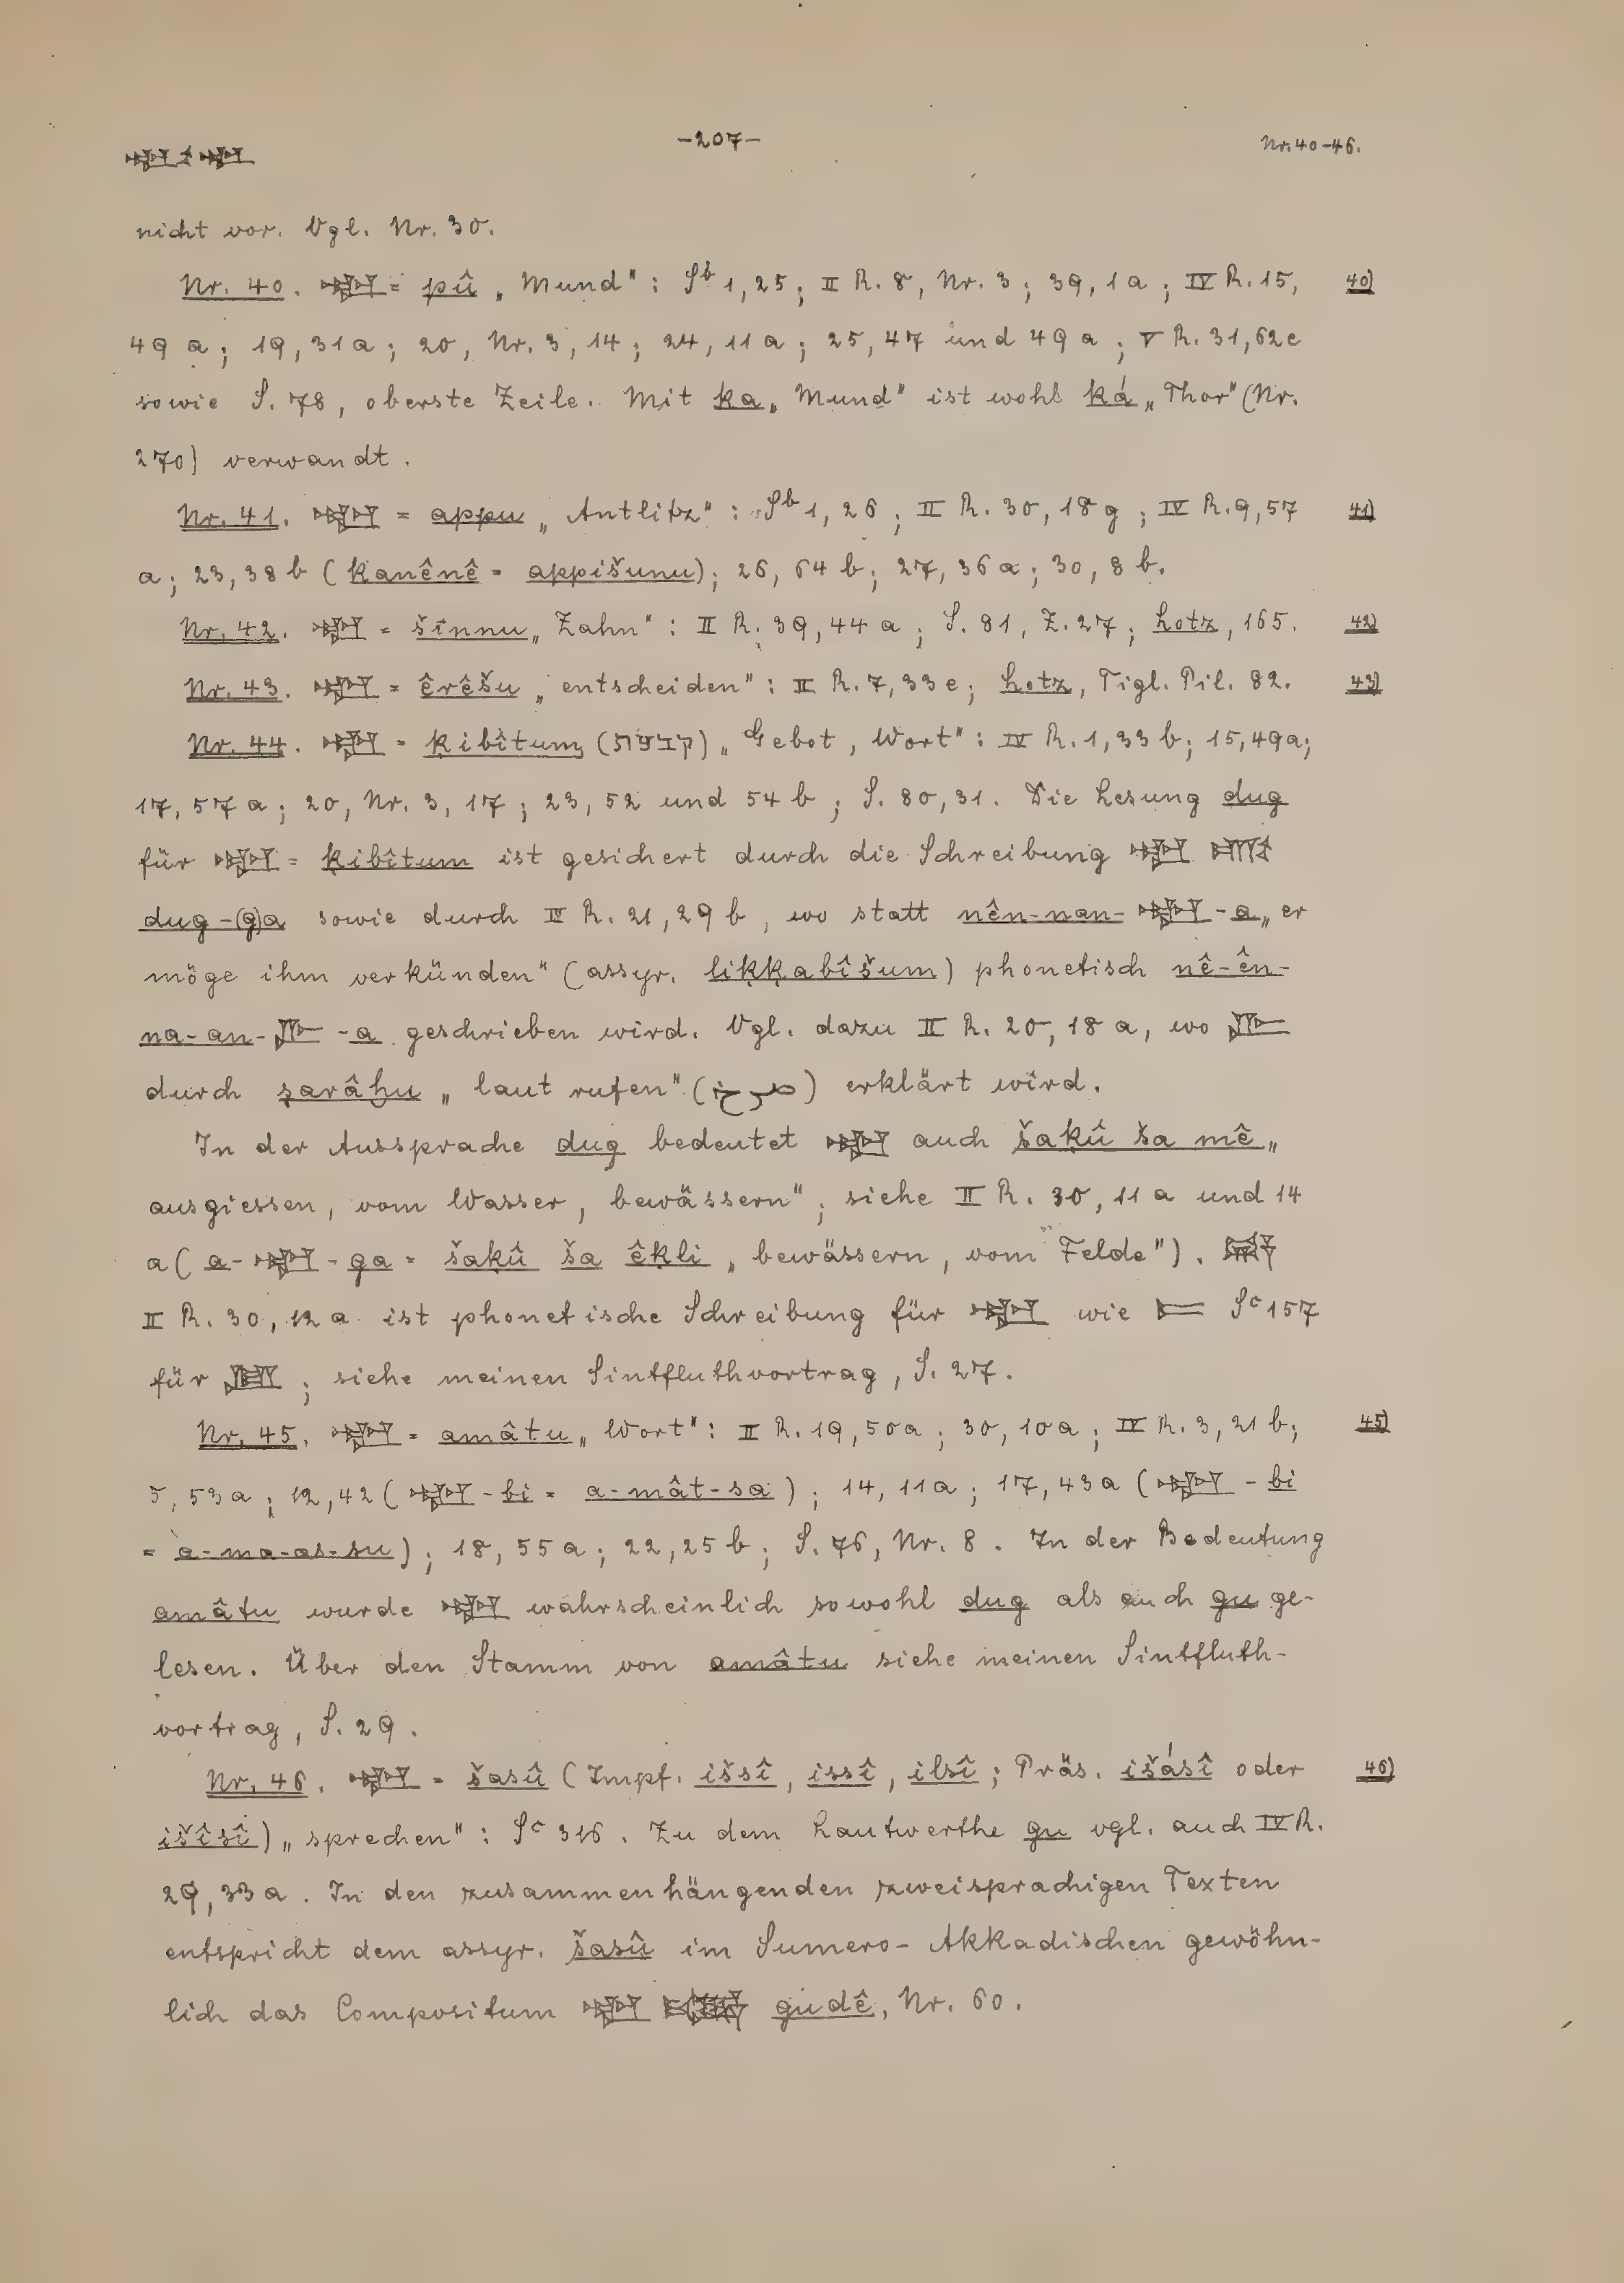 𒅗 – 𒅗 -207- Nr. 40-46.
nicht vor. Vgl. Nr. 30.
Nr. 40. 𒅗 = pû „Mund": Sᵇ 1,25; II R. 8, Nr. 3; 39, 1a; IV R. 15, 40)
49 a; 19, 31a; 20, Nr. 3, 14; 24, 11a; 25, 47 und 49 a; V R. 31, 62e
sowie S. 78, oberste Zeile. Mit ka „Mund" ist wohl ká „Thor" (Nr.
270) verwandt.
Nr. 41. 𒅗 = appu „Antlitz": Sᵇ 1, 26; II R. 30, 18g; IV R. 9, 57 41)
a; 23, 38 b (kanênê = appišunu); 26, 64 b; 27, 36a; 30, 8 b.
Nr. 42. 𒅗 = šinnu „Zahn": II R. 39, 44 a; S. 81, Z. 27; Lotz, 165. 42)
Nr. 43. 𒅗 = êrêšu „entscheiden": II R. 7, 33e; Lotz, Tigl. Pil. 82. 43)
Nr. 44. 𒅗 = ḳibîtum (קביתו) „Gebot, Wort": IV R. 1, 33 b; 15, 49a;
17, 57 a; 20, Nr. 3, 17; 23, 52 und 54 b; S. 80, 31. Die Lesung dug
für 𒅗 = ḳibîtum ist gesichert durch die Schreibung 𒅗 𒂵
dug-(g)a sowie durch IV R. 21, 29 b, wo statt nên-nan-𒅗-a „er
möge ihm verkünden" (assyr. liḳḳabîšum) phonetisch nê-ên-
na-an- -a geschrieben wird. Vgl. dazu II R. 20, 18 a, wo
durch ṣarâḫu „laut rufen" (صرخ) erklärt wird.
In der Aussprache dug bedeutet 𒅗 auch šaḳû ša mê „
ausgiessen, vom Wasser, bewässern"; siehe II R. 30, 11 a und 14
a (a-𒅗-ga = šaḳû ša êḳli „bewässern, vom Felde").
II R. 30, 12 a ist phonetische Schreibung für 𒅗 wie Sᶜ 157
für ; siehe meinen Sintfluthvortrag, S. 27.
Nr. 45. 𒅗 = amâtu „Wort": II R. 19, 50a; 30, 10a; IV R. 3, 21 b; 45)
5, 53a; 12, 42 (𒅗-bi = a-mât-sa); 14, 11a; 17, 43a (𒅗-bi
= a-ma-as-su); 18, 55a; 22, 25 b; S. 76, Nr. 8. In der Bedeutung
amâtu wurde 𒅗 wahrscheinlich sowohl dug als auch gu ge-
lesen. Über den Stamm von amâtu siehe meinen Sintfluth-
vortrag, S. 29.
Nr. 46. 𒅗 = šasû (Impf. išsî, issî, ilsî; Präs. išásî oder 46)
išîsî) „sprechen": Sᶜ 316. Zu dem Lautwerthe gu vgl. auch IV R.
29, 33a. In den zusammenhängenden zweisprachigen Texten
entspricht dem assyr. šasû im Sumero-Akkadischen gewöhn-
lich das Compositum 𒅗 gudê, Nr. 60.